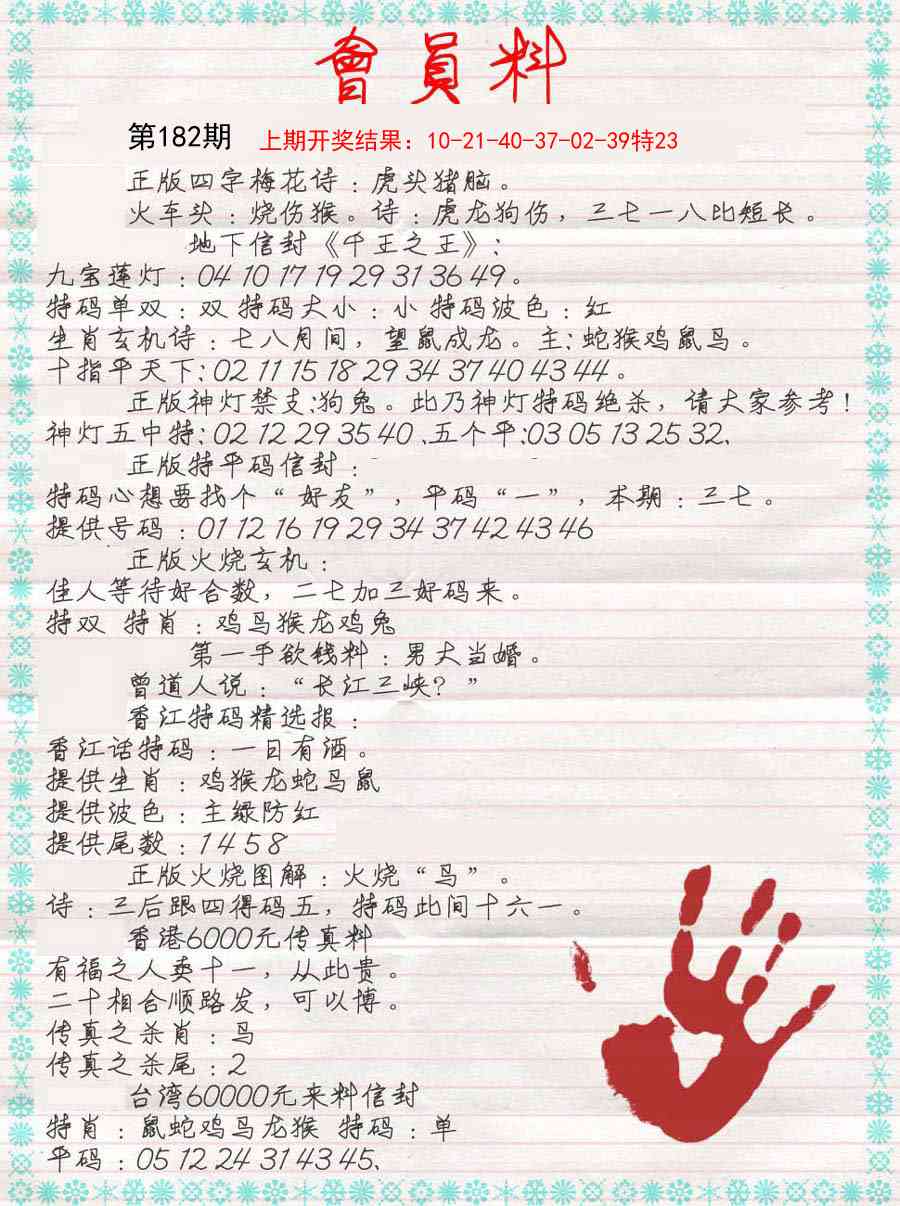 會員料
第182期 上期开奖结果：10-21-40-37-02-39特23
正版四字梅花诗：虎头猪脑。
火车头：烧伤猴。诗：虎龙狗伤，三七一八比短长。
地下信封《千王之王》：
九宝莲灯：04 10 17 19 29 31 36 49。
特码单双：双 特码大小：小 特码波色：红
生肖玄机诗：七八月间，望鼠成龙。主：蛇猴鸡鼠马。
十指平天下：02 11 15 18 29 34 37 40 43 44。
正版神灯禁支：狗兔。此乃神灯特码绝杀，请大家参考！
神灯五中特：02 12 29 35 40、五个平：03 05 13 25 32、
正版特平码信封：
特码心想要找个“好友”，平码“一”，本期：三七。
提供号码：01 12 16 19 29 34 37 42 43 46
正版火烧玄机：
佳人等待好合数，二七加三好码来。
特双 特肖：鸡马猴龙鸡兔
第一手欲钱料：男大当婚。
曾道人说：“长江三峡？”
香江特码精选报：
香江话特码：一日有酒。
提供生肖：鸡猴龙蛇马鼠
提供波色：主绿防红
提供尾数：1 4 5 8
正版火烧图解：火烧“鸟”。
诗：三后跟四得码五，特码此间十六一。
香港6000元传真料
有福之人卖十一，从此贵。
二十相合顺路发，可以博。
传真之杀肖：马
传真之杀尾：2
台湾60000元来料信封
特肖：鼠蛇鸡马龙猴 特码：单
平码：05 12 24 31 43 45、